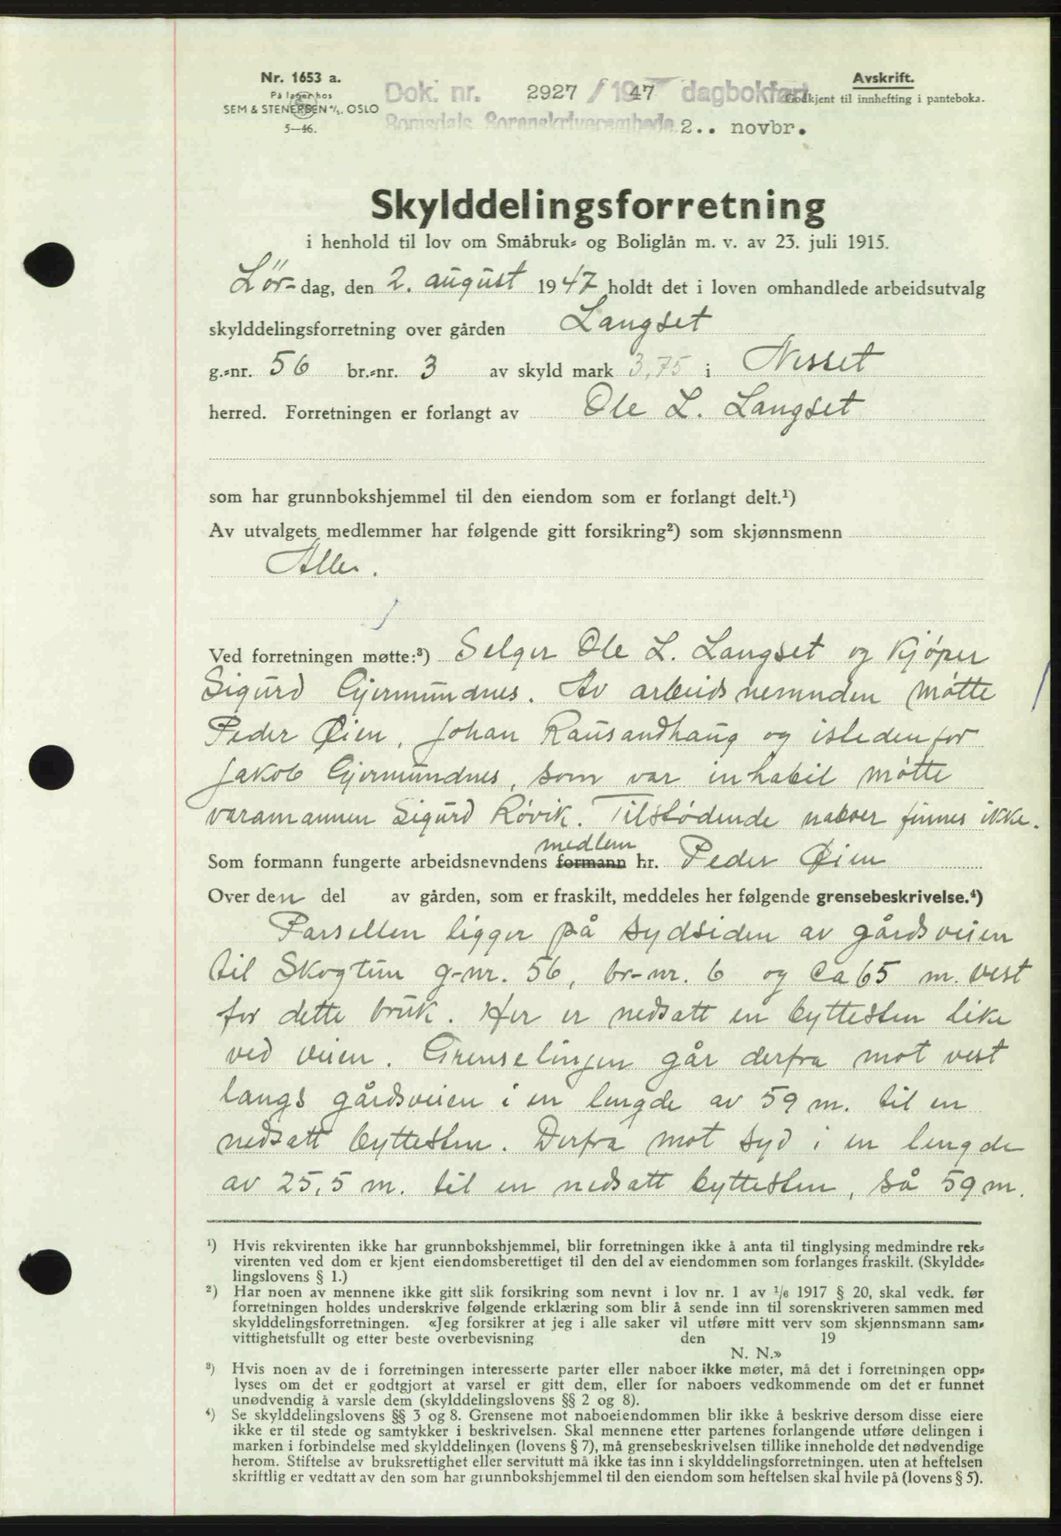 Nr. 1653 a.
På lager hos
SEM & STENERSEN A/S. OSLO
5—46.
Dok. nr. 2927 / 1947 dagbokført
Romsdals Sorenskriverembede 2.. novbr.
Avskrift.
Godkjent til innhefting i panteboka.
Skylddelingsforretning
i henhold til lov om Småbruk- og Boliglån m. v. av 23. juli 1915.
Lør- dag, den 2. august 1947 holdt det i loven omhandlede arbeidsutvalg
skylddelingsforretning over gården Langset
g.-nr. 56 br.-nr. 3 av skyld mark 3,75 i Nesset
herred. Forretningen er forlangt av Ole L. Langset
som har grunnbokshjemmel til den eiendom som er forlangt delt.¹)
Av utvalgets medlemmer har følgende gitt forsikring²) som skjønnsmenn
Alle.
Ved forretningen møtte:³) Selger Ole L. Langset og kjøper
Sigurd Gjermundnes. Av arbeidsnemnden møtte
Peder Øien, Johan Rausandhaug og istedenfor
Jakob Gjermundnes, som var inhabil møtte
varamannen Sigurd Røvik. Tilstødende naboer finnes ikke.
medlem
Som formann fungerte arbeidsnevndens formann hr. Peder Øien
Over den del av gården, som er fraskilt, meddeles her følgende grensebeskrivelse.⁴)
Parsellen ligger på sydsiden av gårdsveien
til Skogtun g-nr. 56, br-nr. 6 og ca 65 m. vest
for dette bruk. Her er nedsatt en byttesten like
ved veien. Grenselinjen går derfra mot vest
langs gårdsveien i en lengde av 59 m. til en
nedsatt byttesten. Derfra mot syd i en lengde
av 25,5 m. til en nedsatt byttesten, så 59 m.
¹) Hvis rekvirenten ikke har grunnbokshjemmel, blir forretningen ikke å anta til tinglysing medmindre rek-
virenten ved dom er kjent eiendomsberettiget til den del av eiendommen som forlanges fraskilt. (Skyldde-
lingslovens § 1.)
²) Har noen av mennene ikke gitt slik forsikring som nevnt i lov nr. 1 av 1/6 1917 § 20, skal vedk. før
forretningen holdes underskrive følgende erklæring som blir å sende inn til sorenskriveren sammen med
skylddelingsforretningen. «Jeg forsikrer at jeg i alle saker vil utføre mitt verv som skjønnsmann sam-
vittighetsfullt og etter beste overbevisning den 19
N. N.»
³) Hvis noen av de i forretningen interesserte parter eller naboer ikke møter, må det i forretningen opp-
lyses om det er godtgjort at varsel er gitt dem, eller for naboers vedkommende om det er funnet
unødvendig å varsle dem (skylddelingslovens §§ 2 og 8).
⁴) Se skylddelingslovens §§ 3 og 8. Grensene mot naboeiendommen blir ikke å beskrive dersom disse eiere
ikke er til stede og samtykker i beskrivelsen. Skal mennene etter partenes forlangende utføre delingen i
marken i forbindelse med skylddelingen (lovens § 7), må grensebeskrivelsen tillike inneholde det nødvendige
herom. Stiftelse av bruksrettighet eller servitutt må ikke tas inn i skylddelingsforretningen. uten at heftelsen
skriftlig er vedtatt av den som har grunnbokshjemmel til den eiendom som heftelsen skal hvile på (lovens § 5).